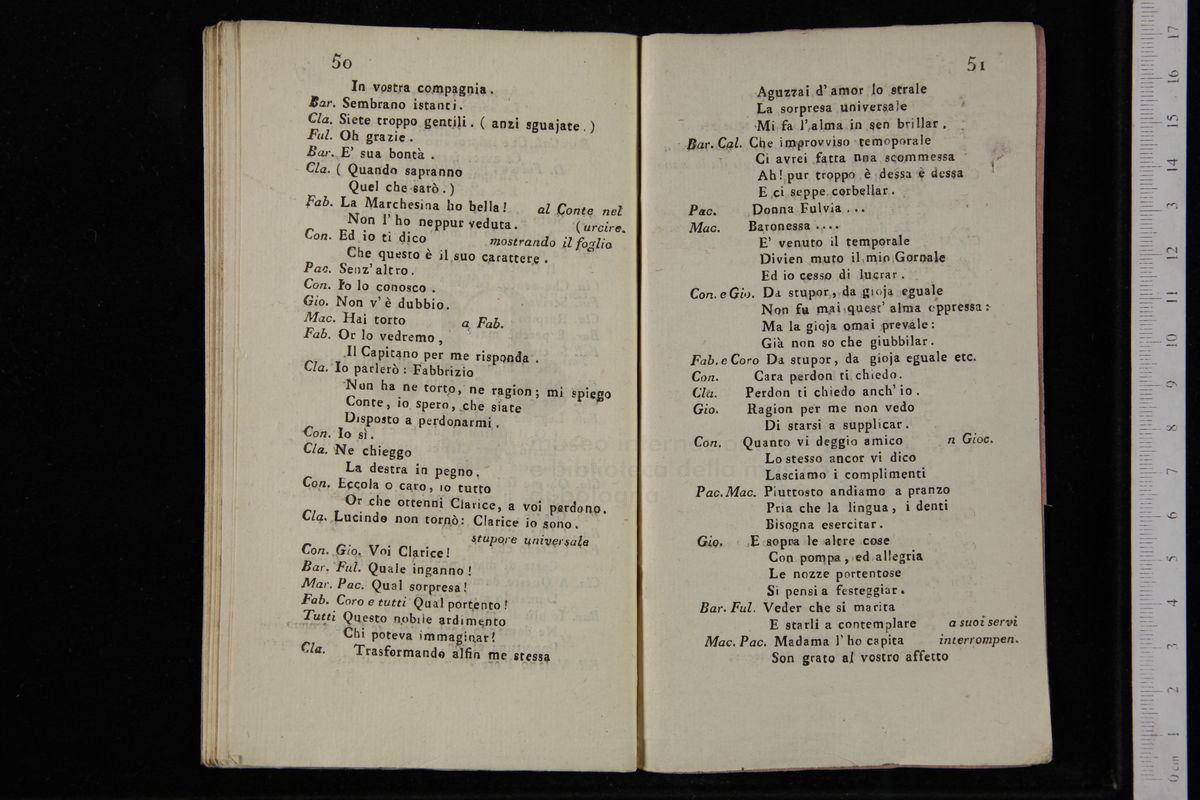 50
In vostra compagnia.
Bar. Sembrano istanti.
Cla. Siete troppo gentili. ( anzi sguajate.)
Ful. Oh grazie.
Bar. E' sua bontà.
Cla. ( Quando sapranno
Quel che sarò.)
Fab. La Marchesina ho bella! al Conte nel
Non l'ho neppur veduta. (urcire.
Con. Ed io ti dico mostrando il foglio
Che questo è il suo carattere.
Pac. Senz'altro.
Con. Io lo conosco.
Gio. Non v'è dubbio.
Mac. Hai torto a Fab.
Fab. Or lo vedremo,
Il Capitano per me risponda.
Cla. Io parlerò: Fabbrizio
Nun ha ne torto, ne ragion; mi spiego
Conte, io spero, che siate
Disposto a perdonarmi.
Con. Io sì.
Cla. Ne chieggo
La destra in pegno.
Con. Eccola o caro, io tutto
Or che ottenni Clarice, a voi perdono.
Cla. Lucindo non tornò: Clarice io sono.
stupore universale
Con. Gio. Voi Clarice!
Bar. Ful. Quale inganno!
Mar. Pac. Qual sorpresa!
Fab. Coro e tutti Qual portento!
Tutti Questo nobile ardimento
Chi poteva immaginar?
Cla. Trasformando alfin me stessa
51
Aguzzai d'amor lo strale
La sorpresa universale
Mi fa l'alma in sen brillar.
Bar. Cal. Che improvviso temoporale
Ci avrei fatta nna scommessa
Ah! pur troppo è dessa è dessa
E ci seppe corbellar.
Pac. Donna Fulvia...
Mac. Baronessa....
E' venuto il temporale
Divien muto il mio Gornale
Ed io cesso di lucrar.
Con. e Gio. Da stupor, da gioja eguale
Non fu mai quest'alma oppressa:
Ma la gioja omai prevale:
Già non so che giubbilar.
Fab. e Coro Da stupor, da gioja eguale etc.
Con. Cara perdon ti chiedo.
Cla. Perdon ti chiedo anch'io.
Gio. Ragion per me non vedo
Di starsi a supplicar.
Con. Quanto vi deggio amico n Gioc.
Lo stesso ancor vi dico
Lasciamo i complimenti
Pac. Mac. Piuttosto andiamo a pranzo
Pria che la lingua, i denti
Bisogna esercitar.
Gio. E sopra le altre cose
Con pompa, ed allegria
Le nozze portentose
Si pensi a festeggiar.
Bar. Ful. Veder che si marita
E starli a contemplare a suoi servi
Mac. Pac. Madama l'ho capita interrompen.
Son grato al vostro affetto